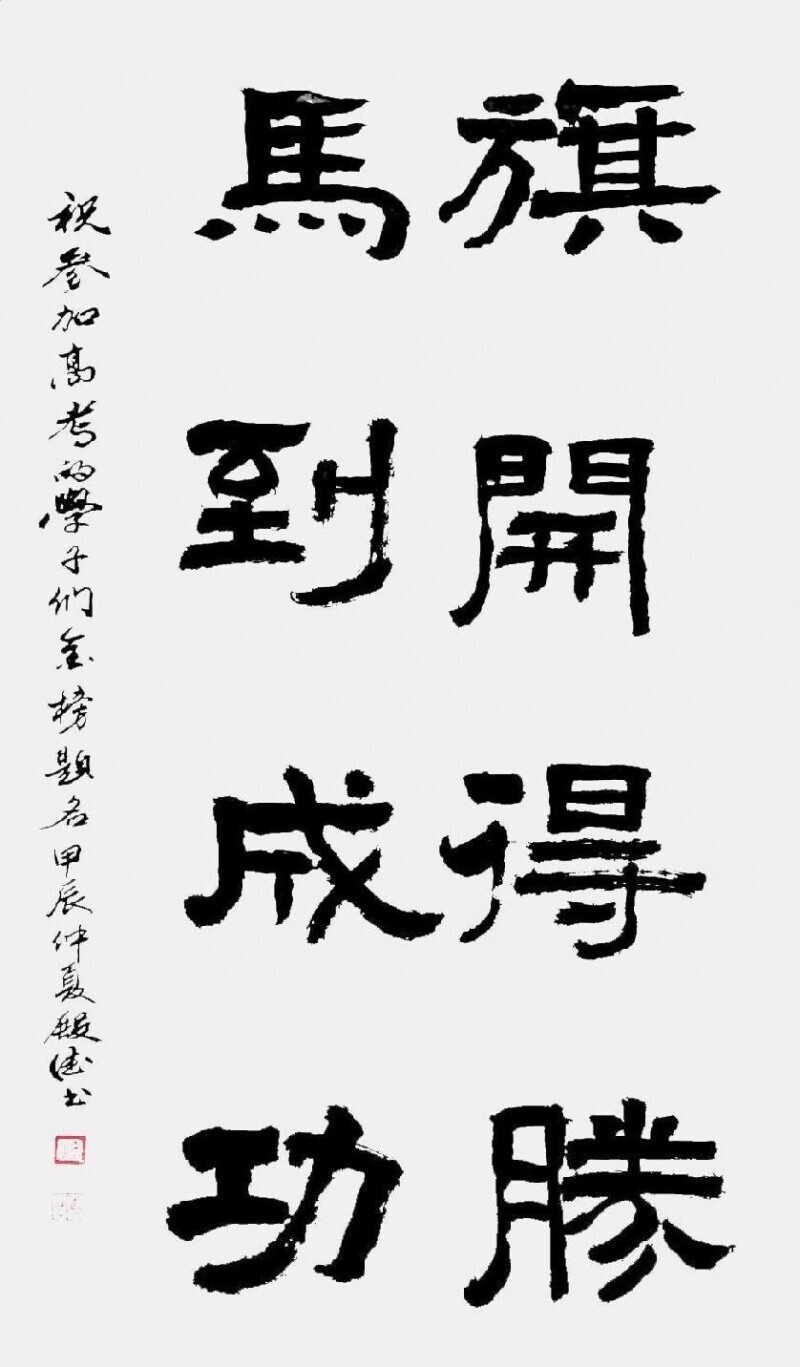 旗開得勝
馬到成功
祝參加高考的學子們金榜題名甲辰仲夏殿德书